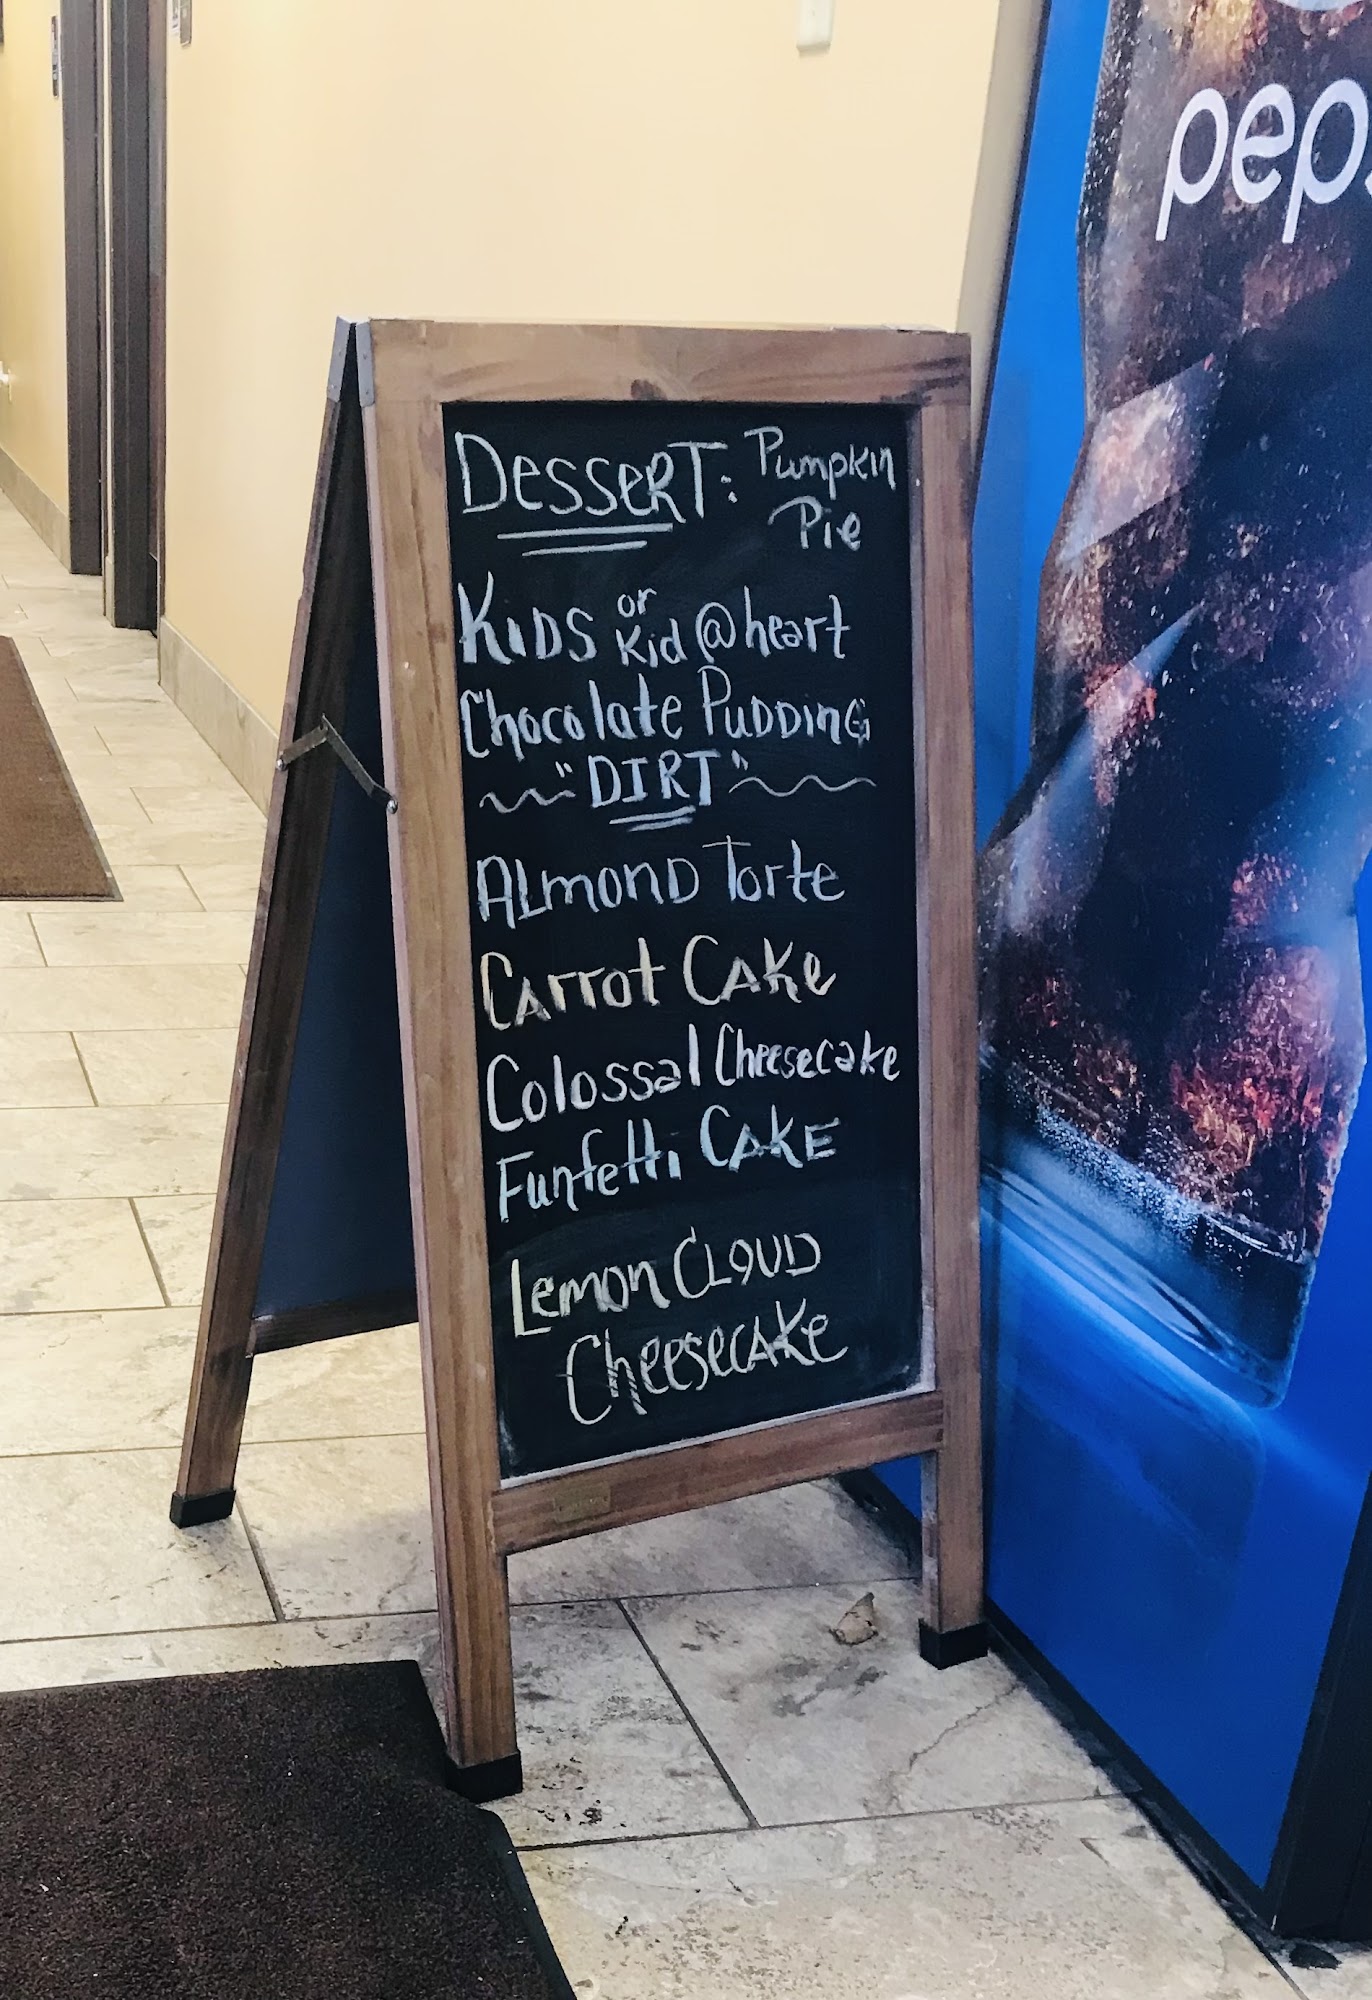 Dessert: Pumpkin
Pie
Kids or Kid @heart
Chocolate Pudding
"DIRT"
Almond Torte
Carrot Cake
Colossal Cheesecake
Funfetti Cake
Lemon Cloud
Cheesecake
peps